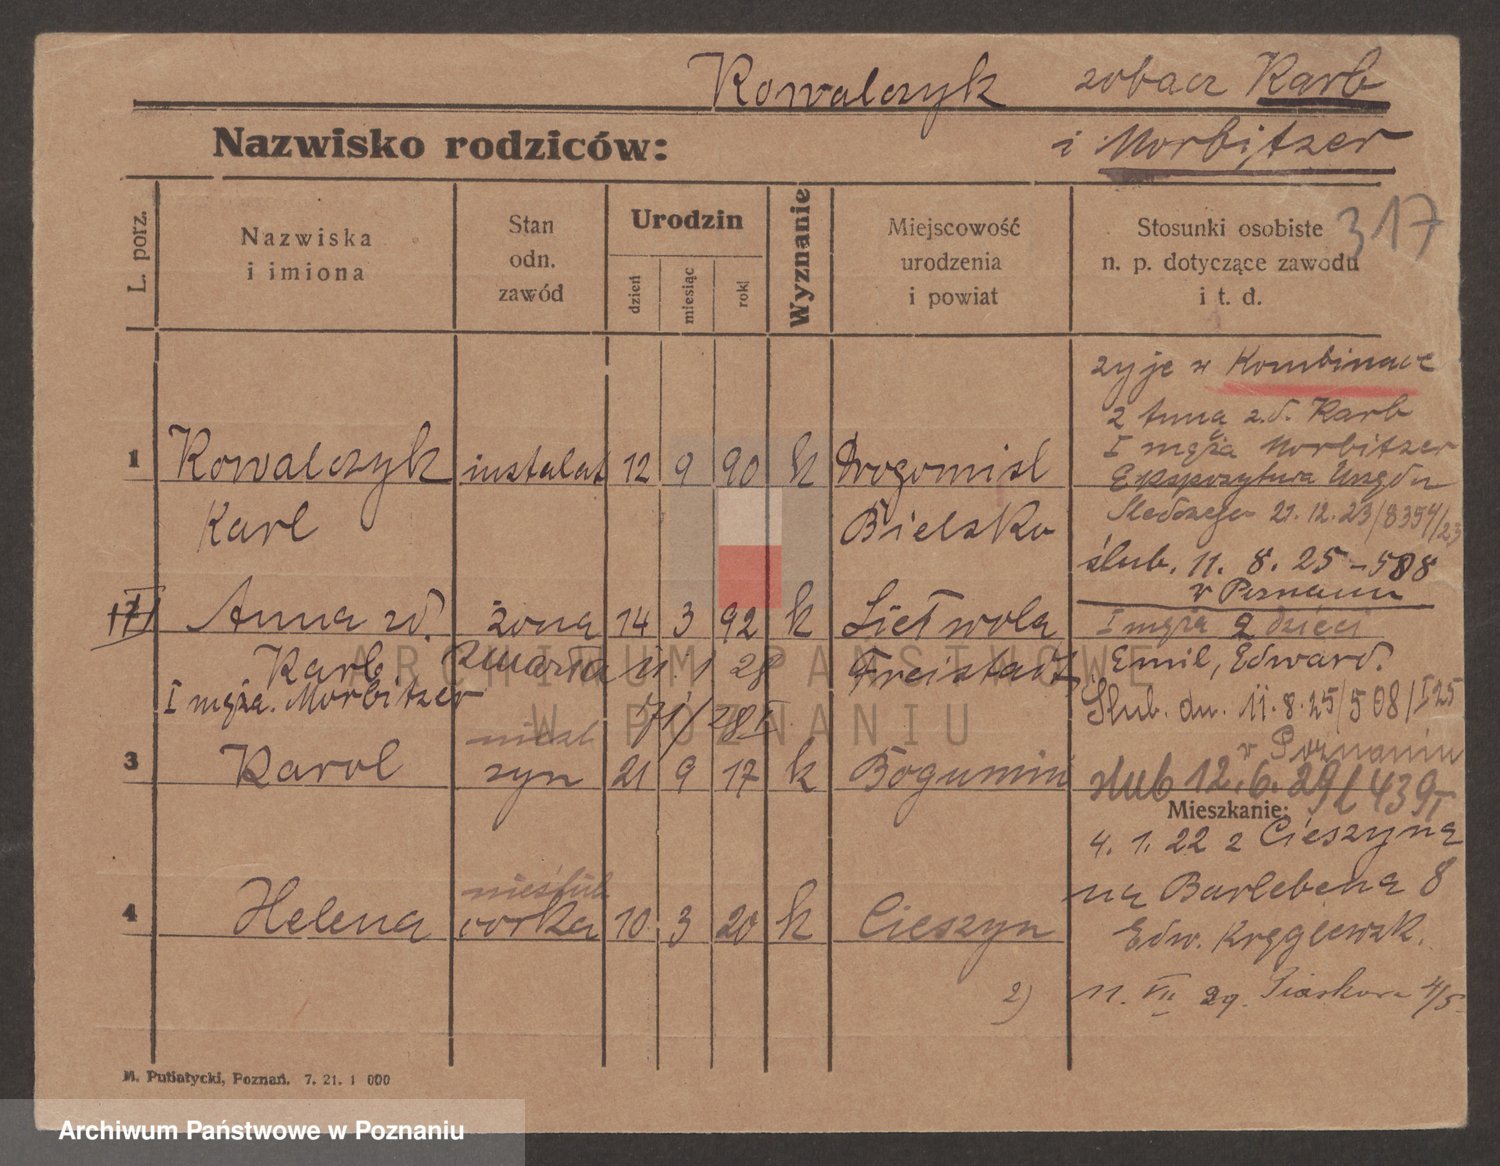 Kowalczyk zobacz Karb
Nazwisko rodziców: i Morbitzer
317
L. porz.
Nazwiska
i imiona
Stan
odn.
zawód
Urodzin
dzień
miesiąc
rok
Wyznanie
Miejscowość
urodzenia
i powiat
Stosunki osobiste
n. p. dotyczące zawodu
i t. d.
żyje w Kombinace
z Anną z.d. Karb
I męża Morbitzer
1 Kowalczyk instalat 12 9 90 k Drogomisl
Ekspozytura Urzędu
Karl Bielsko
Śledczego 21.12.23/8394/23
ślub. 11. 8. 25 – 508
w Poznaniu
Anna zd. żona 14 3 92 k Lietwola
I męża 2 dzieci
Karb zmarła 11 1 28 Freistadt
Emil, Edward.
I męża. Morbitzer 171/28I
Ślub. dn. 11.8.25/508/I25
w Poznaniu
3 Karol syn 21 9 17 k Bogumin
ślub 12.6.29 439I
Mieszkanie:
4. 1. 22 z Cieszyna
na Barlebena 8
nieślub
4 Helena córka 10 3 20 k Cieszyn
Edw. Kręglewsk.
2) 11. VII 29. Piaskowa 4/5
M. Putiatycki, Poznań. 7. 21. 1 000
ARCHIWUM PAŃSTWOWE
W POZNANIU
Archiwum Państwowe w Poznaniu